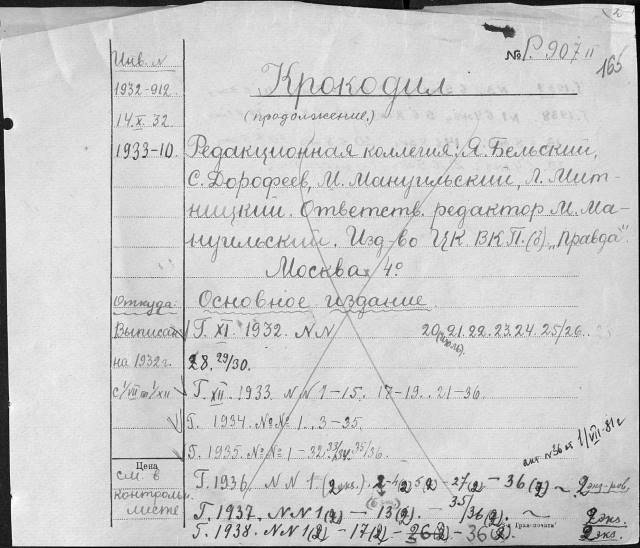 № Р. 907 II
165
Инв. N
1932-912
14.X.32
1933-10.
Крокодил
(продолжение.)
Редакционная коллегия: Я. Бельский,
С. Дорофеев, М. Мануильский, Л. Мит-
ницкий. Ответств. редактор М. Ма-
нуильский. Изд-во ЦК ВКП.(б) „Правда".
Москва. 4°
Откуда:
Основное издание
Выписан
на 1932 г.
с 1/VII по 1/XII
Г. XI. 1932. NN 20 21. 22. 23. 24. 25/26.
28. 29/30.
Г. XII. 1933. NN 1-15. 17-19.. 21-36.
Г. 1934. №№ 1.. 3-35.
Г. 1935. №№ 1-32. 33/34. 35/36.
акт N36 от 1/VII-81г
Цена
см. в
контрольн.
листе
Г. 1936. NN 1 (2 экз.). 2-4(2) 5(2)-27(2) - 36(2) ~
Г. 1937. NN 1(2) - 13(2). - 35/36(2). ~ 2 экз.
Г. 1938. NN 1(2) - 17(2) - 26(2) - 36(2). 2 экз.